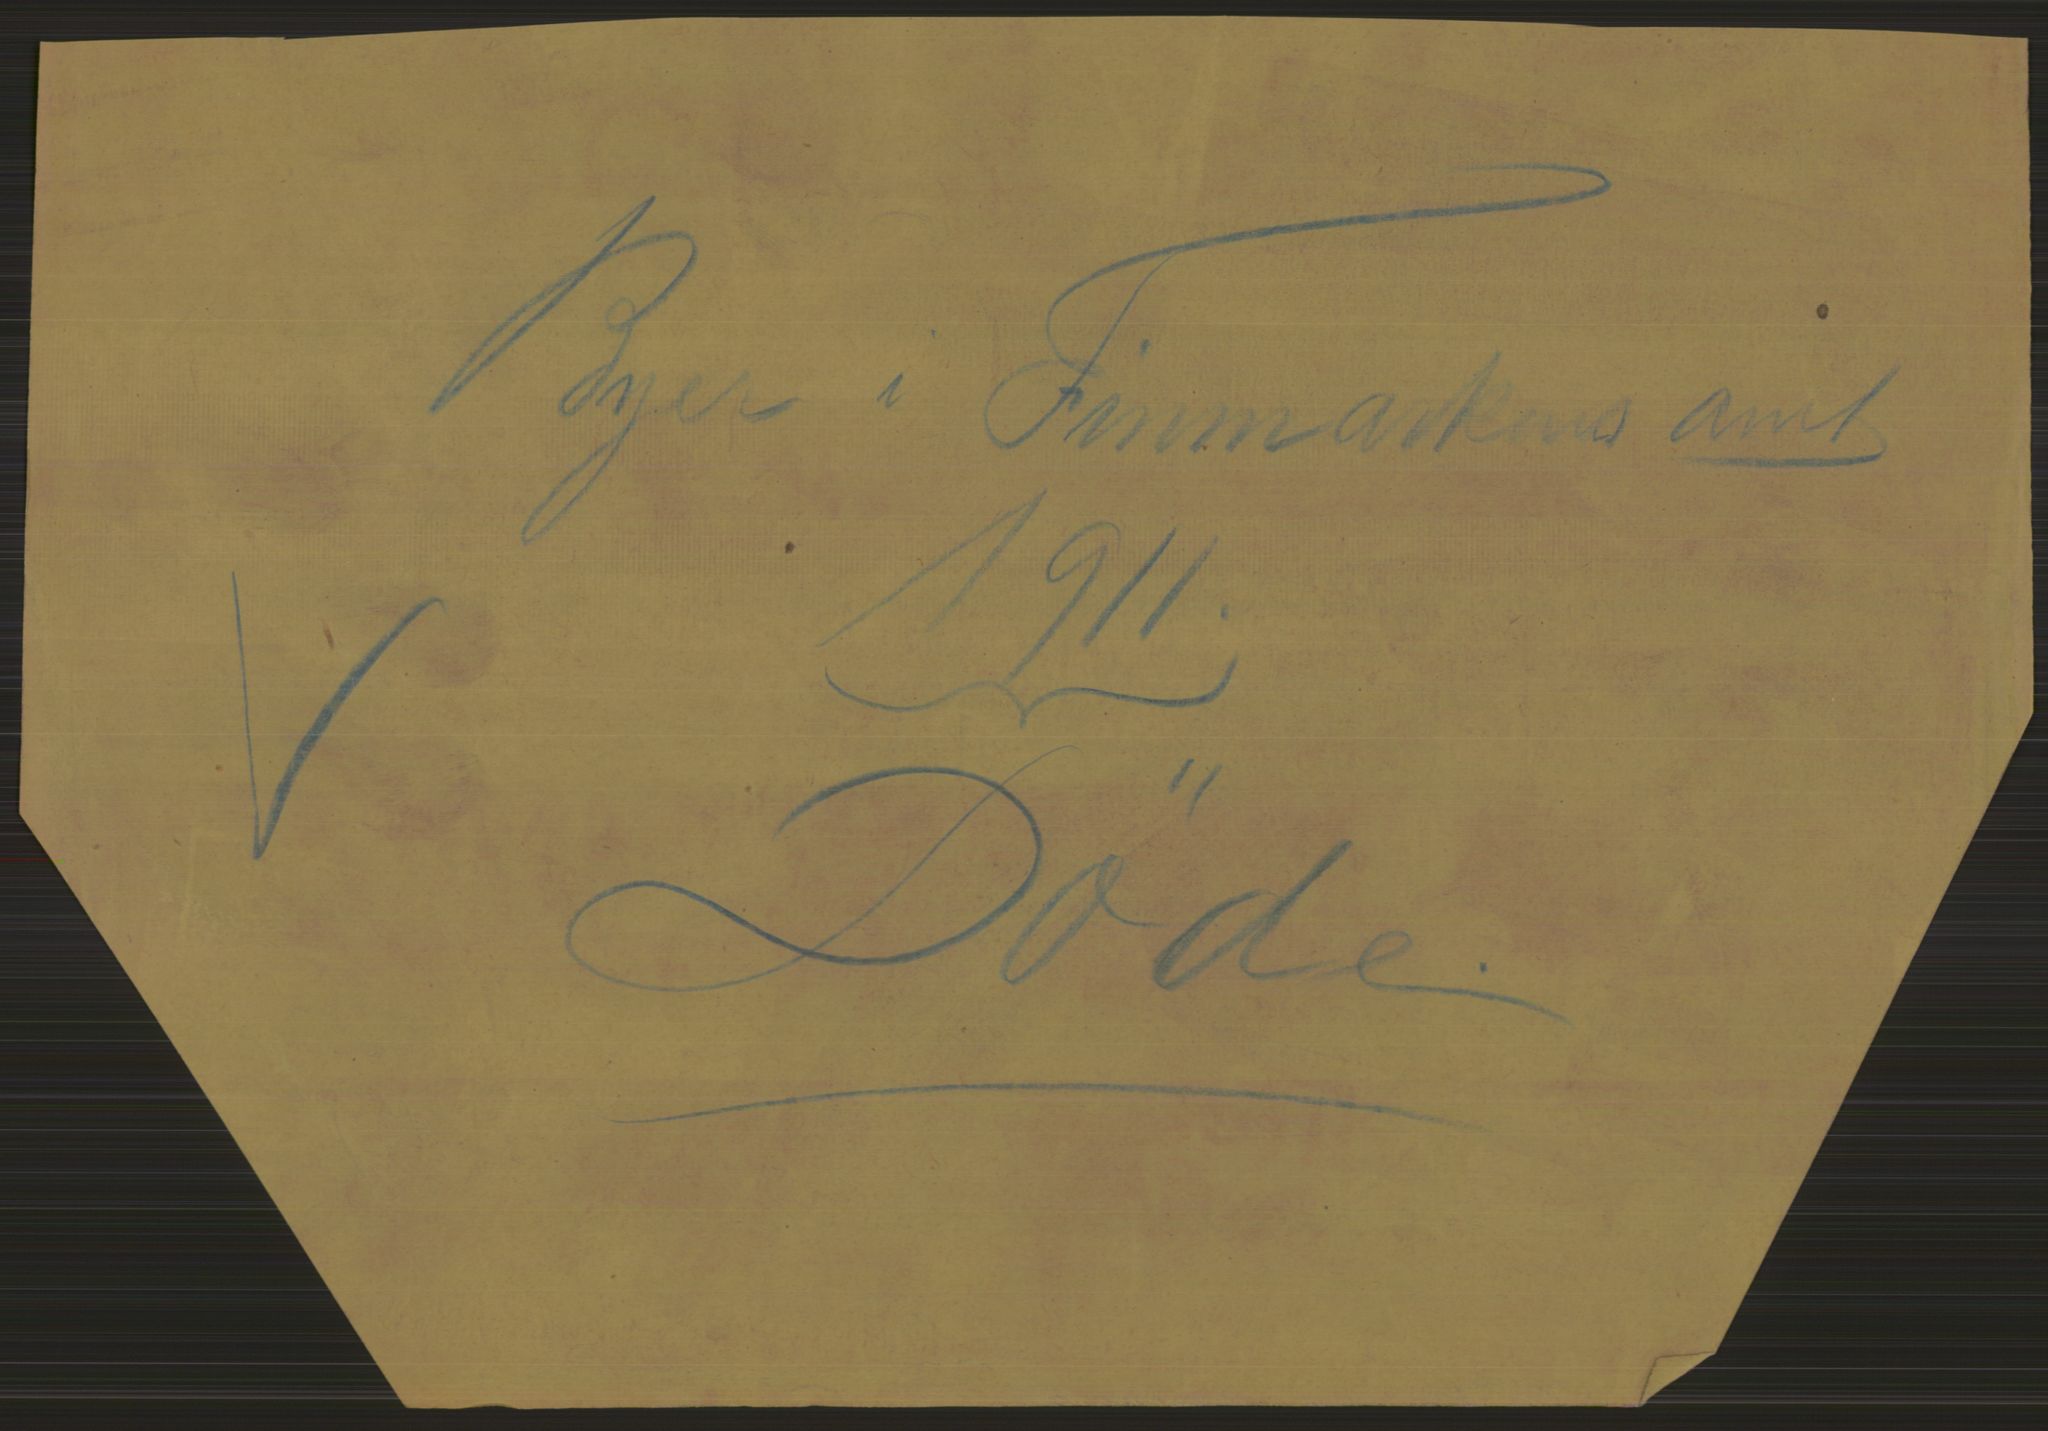 Byer i Finmarkens amt
1911.
V
Döde.